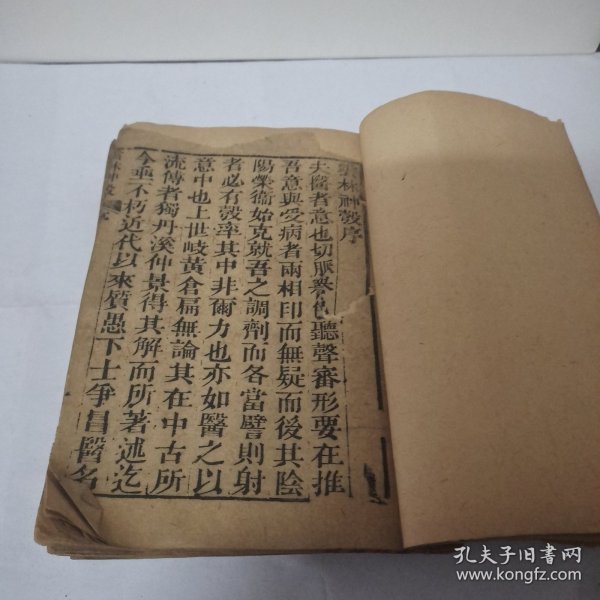 雲林神彀序
夫醫者意也切脈察色聽聲審形要在推
吾意與受病者兩相印而無疑而後其陰
陽榮衞始克就吾之調劑而各當譬則射
者必有彀率其中非爾力也亦如醫之以
意中也上世岐黃倉扁無論其在中古所
流傳者獨丹溪仲景得其解而所著述迄
今乘不朽近代以來質愚下士爭昌醫名
雲林神彀 序 一
孔夫子旧书网
www.kongfz.com